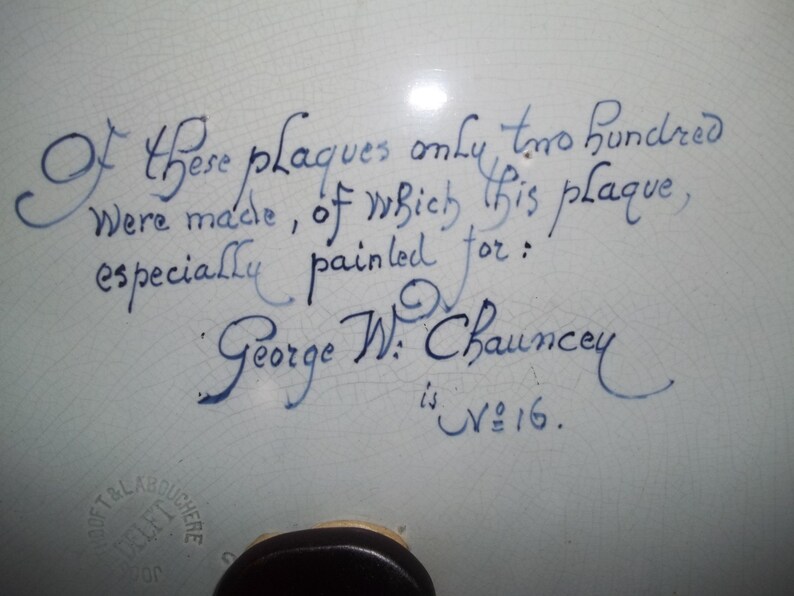 Of these plaques only two hundred
were made, of which this plaque,
especially painted for:
George W. Chauncey
is
No 16.
JOOST THOOFT & LABOUCHERE
DELFT